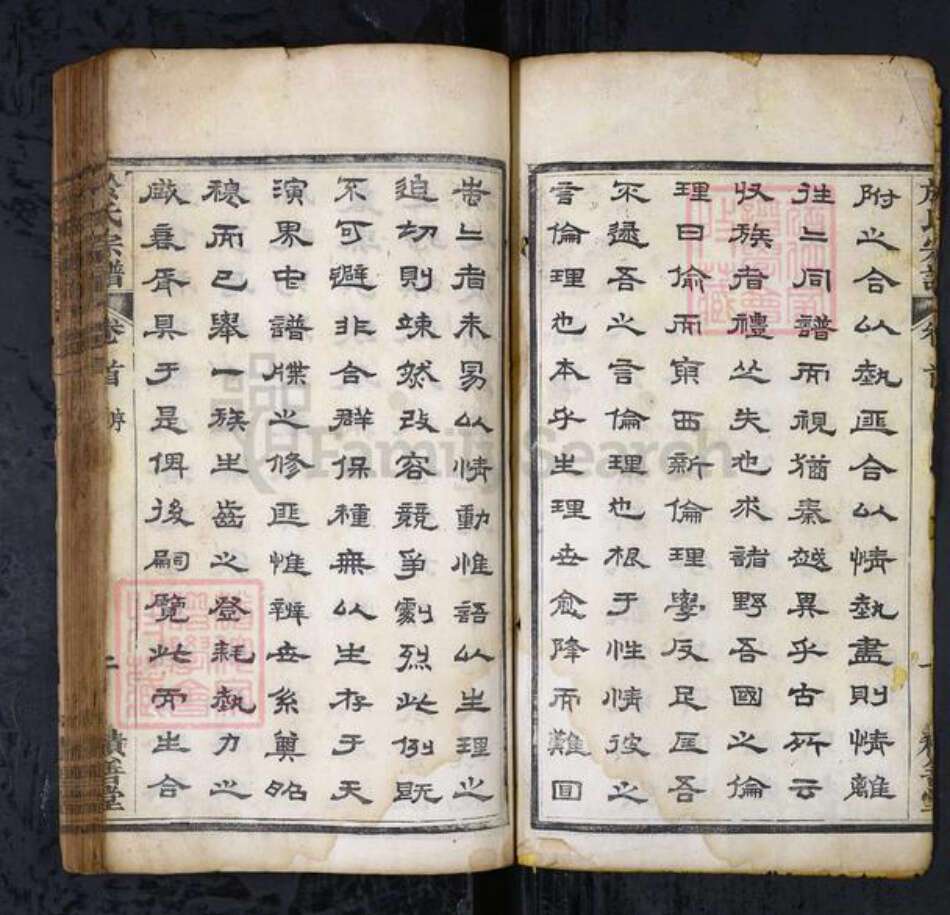 附之合以埶匪合以情埶盡則情離
往二同譜而視猶秦越異乎古所云
収族者禮㐀失也求諸野吾國之倫
理曰偷而東西新倫理學反足匡吾
不逮吾之言倫理也根于性情彼之
言倫理也本乎生理世愈降而難回
者未易以情動惟語以生理之
迫切則竦然改容競爭劇烈此例既
不可避非合群保種無以生存于天
演界中譜牒之修匪惟辨世系奠昭
穆而已舉一族生齒之登耗埶力之
盛衰胥具于是俾後嗣覽此而生合
氏宗譜
卷首
序
二
積善堂
氏宗譜
卷首
一
積善堂
FamilySearch